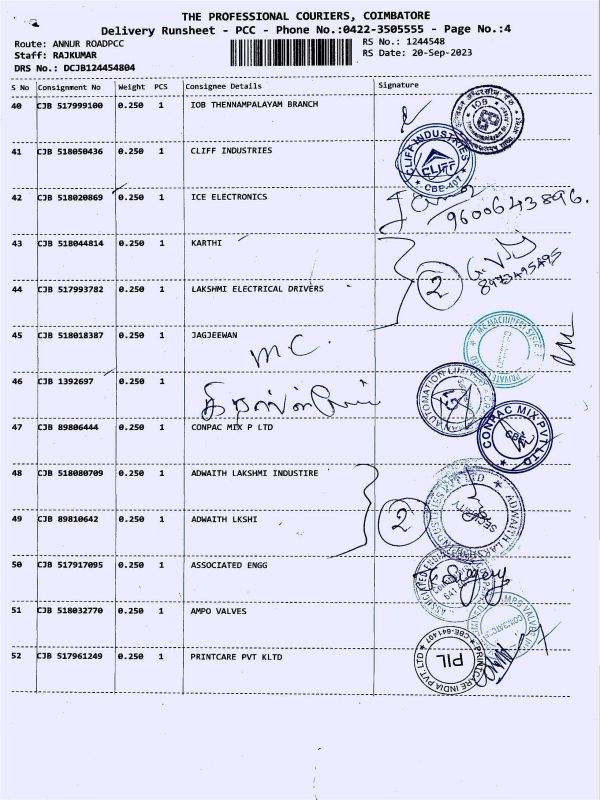 THE PROFESSIONAL COURIERS, COIMBATORE
Delivery Runsheet - PCC - Phone No.:0422-3505555 - Page No.:4
Route: ANNUR ROADPCC
RS No.: 1244548
Staff: RAJKUMAR
RS Date: 20-Sep-2023
DRS No.: DCJB124454804
S No Consignment No Weight PCS Consignee Details Signature
40 CJB 517999100 0.250 1 IOB THENNAMPALAYAM BRANCH
IOB
41 CJB 518050436 0.250 1 CLIFF INDUSTRIES
CLIFF INDUSTRIES
CLIFF
CBE-407
42 CJB 518020869 0.250 1 ICE ELECTRONICS
9600643896.
43 CJB 518044814 0.250 1 KARTHI
2
8973495495
44 CJB 517993782 0.250 1 LAKSHMI ELECTRICAL DRIVERS
45 CJB 518018387 0.250 1 JAGJEEWAN
M.C.
46 CJB 1392697 0.250 1
47 CJB 89806444 0.250 1 CONPAC MIX P LTD
CONPAC MIX PVT LTD
CBE
48 CJB 518080709 0.250 1 ADWAITH LAKSHMI INDUSTIRE
2
SECURITY
49 CJB 89810642 0.250 1 ADWAITH LKSHI
50 CJB 517917095 0.250 1 ASSOCIATED ENGG
51 CJB 518032770 0.250 1 AMPO VALVES
52 CJB 517961249 0.250 1 PRINTCARE PVT KLTD
CBE-641407
PIL
PRINTCARE INDIA PVT. LTD